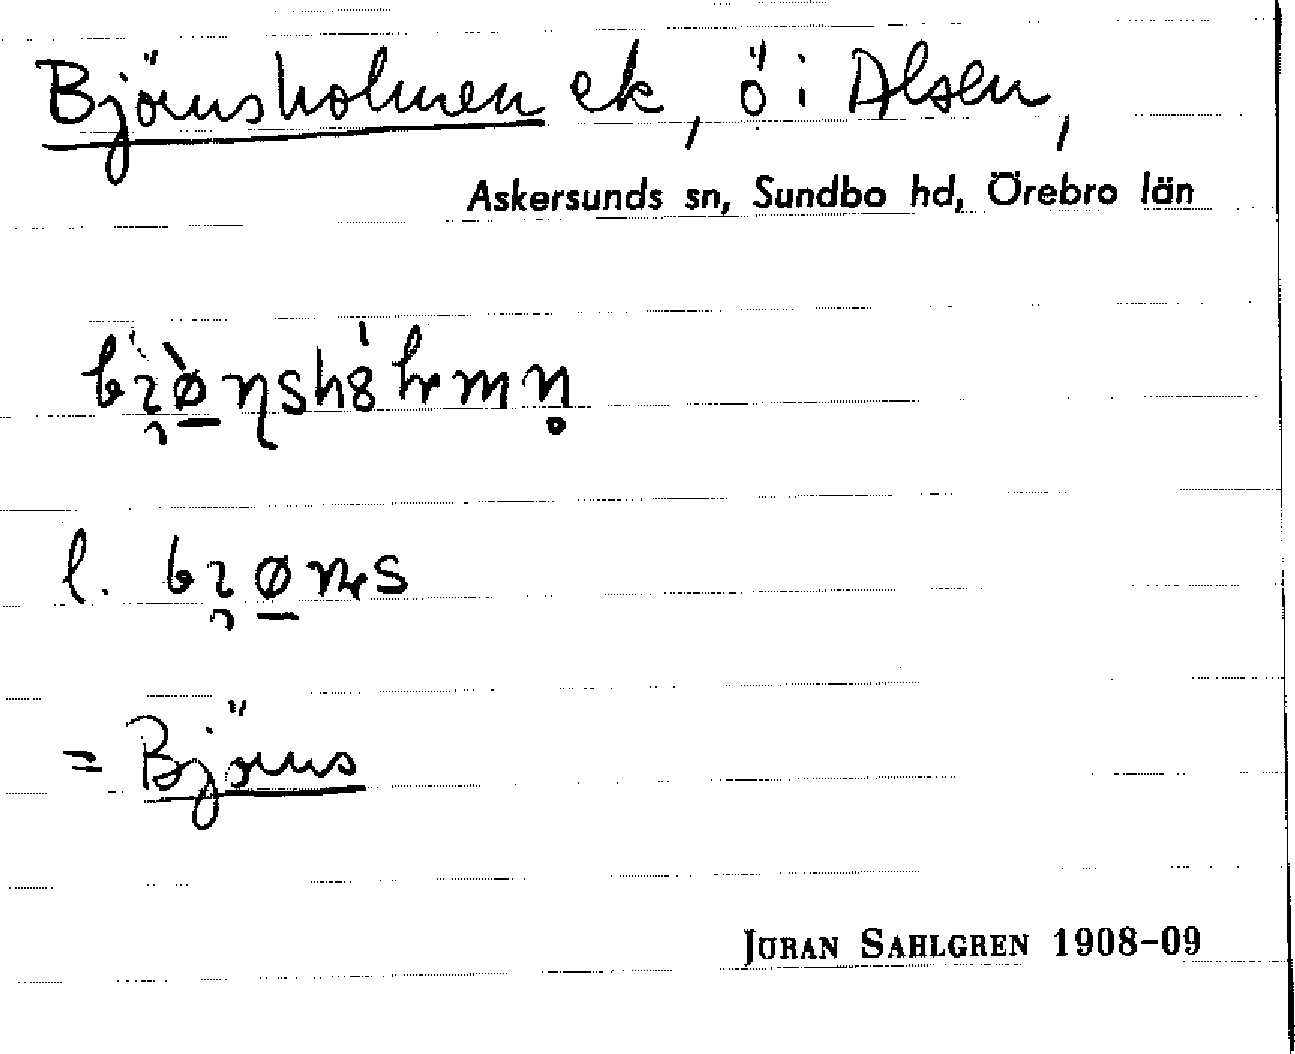 Björnsholmen ek, ö i Alsen,
Askersunds sn, Sundbo hd, Örebro län
l.
= Björns
JÖRAN SAHLGREN 1908–09